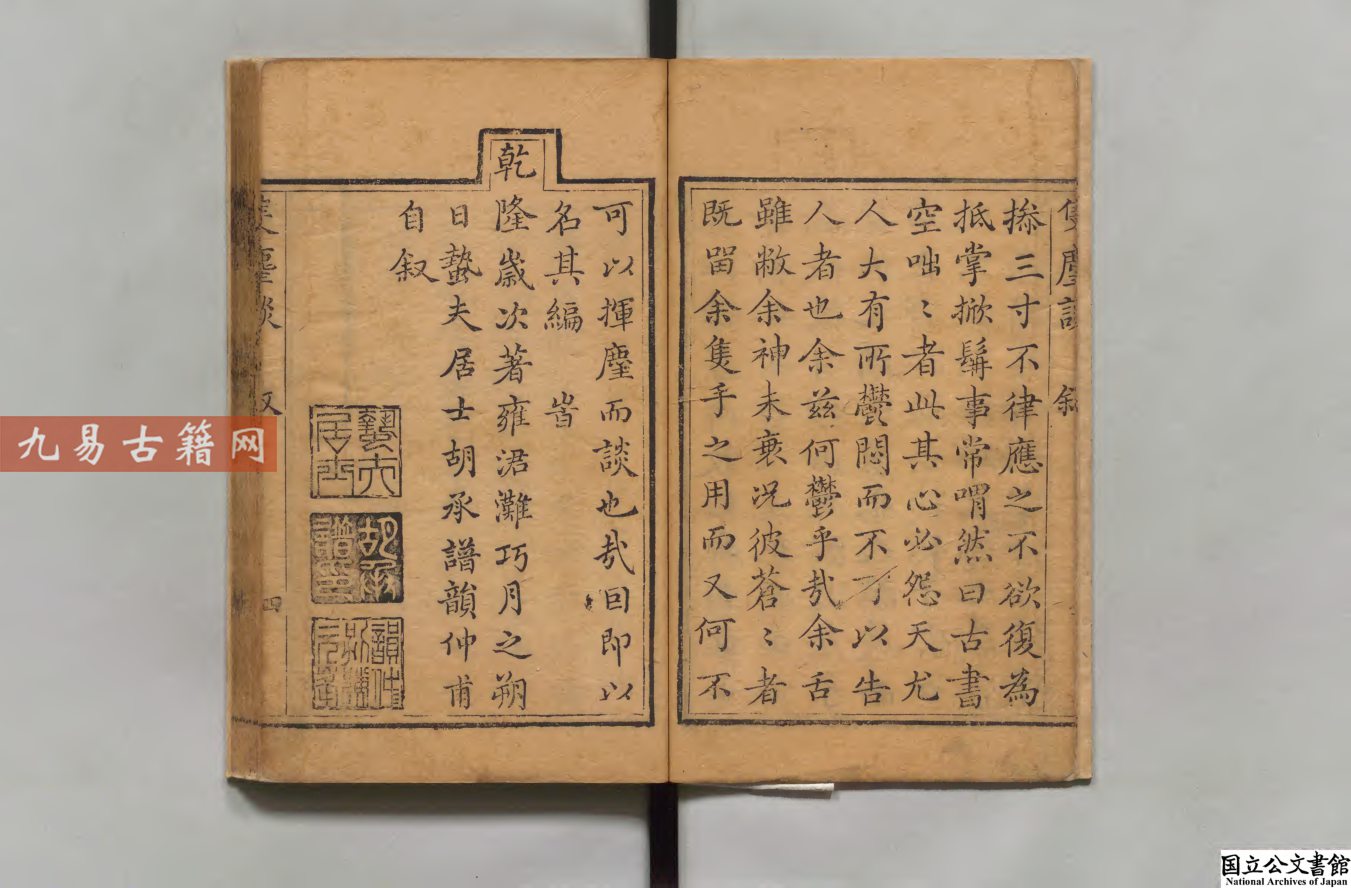 隻麈談　敘
搽三寸不律應之不欲復為
抵掌掀髯事常喟然曰古書
空咄〻者此其心必怨天尤
人大有所鬱悶而不可以告
人者也余茲何鬱乎哉余舌
雖敝余神未衰况彼蒼〻者
既留余隻手之用而又何不
可以揮麈而談也哉回即以
名其編　旹
乾隆歲次著雍涒灘巧月之朔
日蟄夫居士胡承譜韻仲甫
自叙
蟄夫居士
胡承譜印
四
九易古籍网
国立公文書館
National Archives of Japan